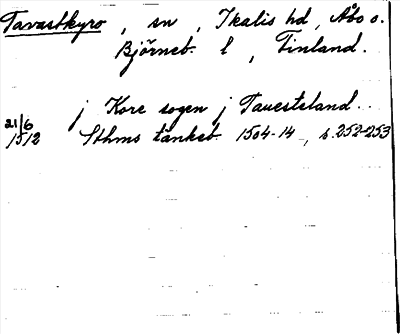 Tavastkyro, sn, Ikalis hd, Åbo o.
Björneb. l, Finland.
j Kore sogen j Tauesteland..
21/6
1512 Sthms tänkeb. 1504-14, s. 252-253